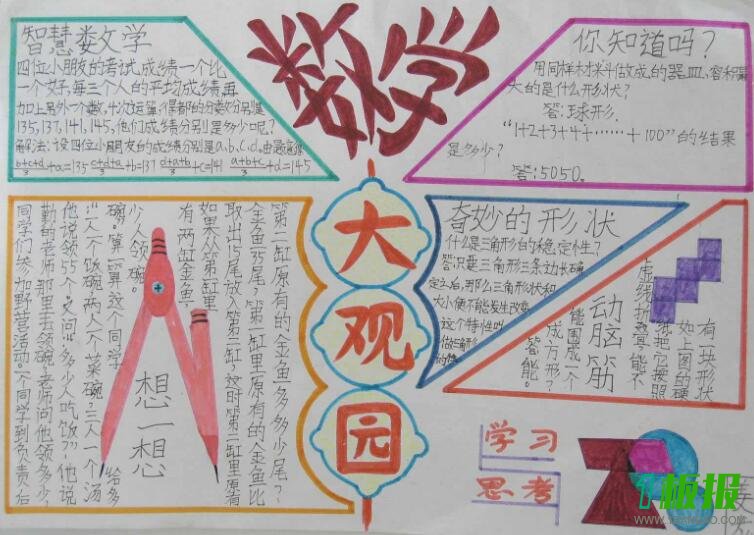 数学
大
观
园
智慧数学
四位小朋友的考试成绩一个比
一个好,每三个人的平均成绩再
加上另外一个数,十次运算,得都的分数分别是
135,137,141,145,他们成绩分别是多少呢?
解法:设四位小朋友的成绩分别是a,b,c,d。由题意得
b+c+d/3+a=135 c+d+a/3+b=137 d+a+b/3+c=141 a+b+c/3+d=145
你知道吗?
用同样材料做成的器皿,容积最
大的是什么形状?
答:球形.
"1+2+3+4+……+100"的结果
是多少?
答:5050。
奇妙的形状
什么是三角形的稳定性?
答:只要三角形三条边长确
定之后,那么三角形状和
大小便不能发生改变,
这个特性叫
做三角形
的
动脑筋
有一块形状
如上图的硬
纸把它按照
虚线折叠,能不
能围成一个
成方形?
答:能。
第二缸原有的金鱼多多少尾?
金鱼35尾?第一缸里原有的金鱼比
取出15尾放入第二缸,这时第二缸里原有
如果从第一缸里
有两缸金鱼,
想一想
同学们参加野营活动。一个同学到负责后
勤的老师那里去领碗。老师问他领多少,
他说领55个。又问"多少人吃饭?"他说
"一人一个饭碗,两人一个菜碗,三人一个汤
碗。"算一算这个同学给多
少人领碗。
学习
思考
板报